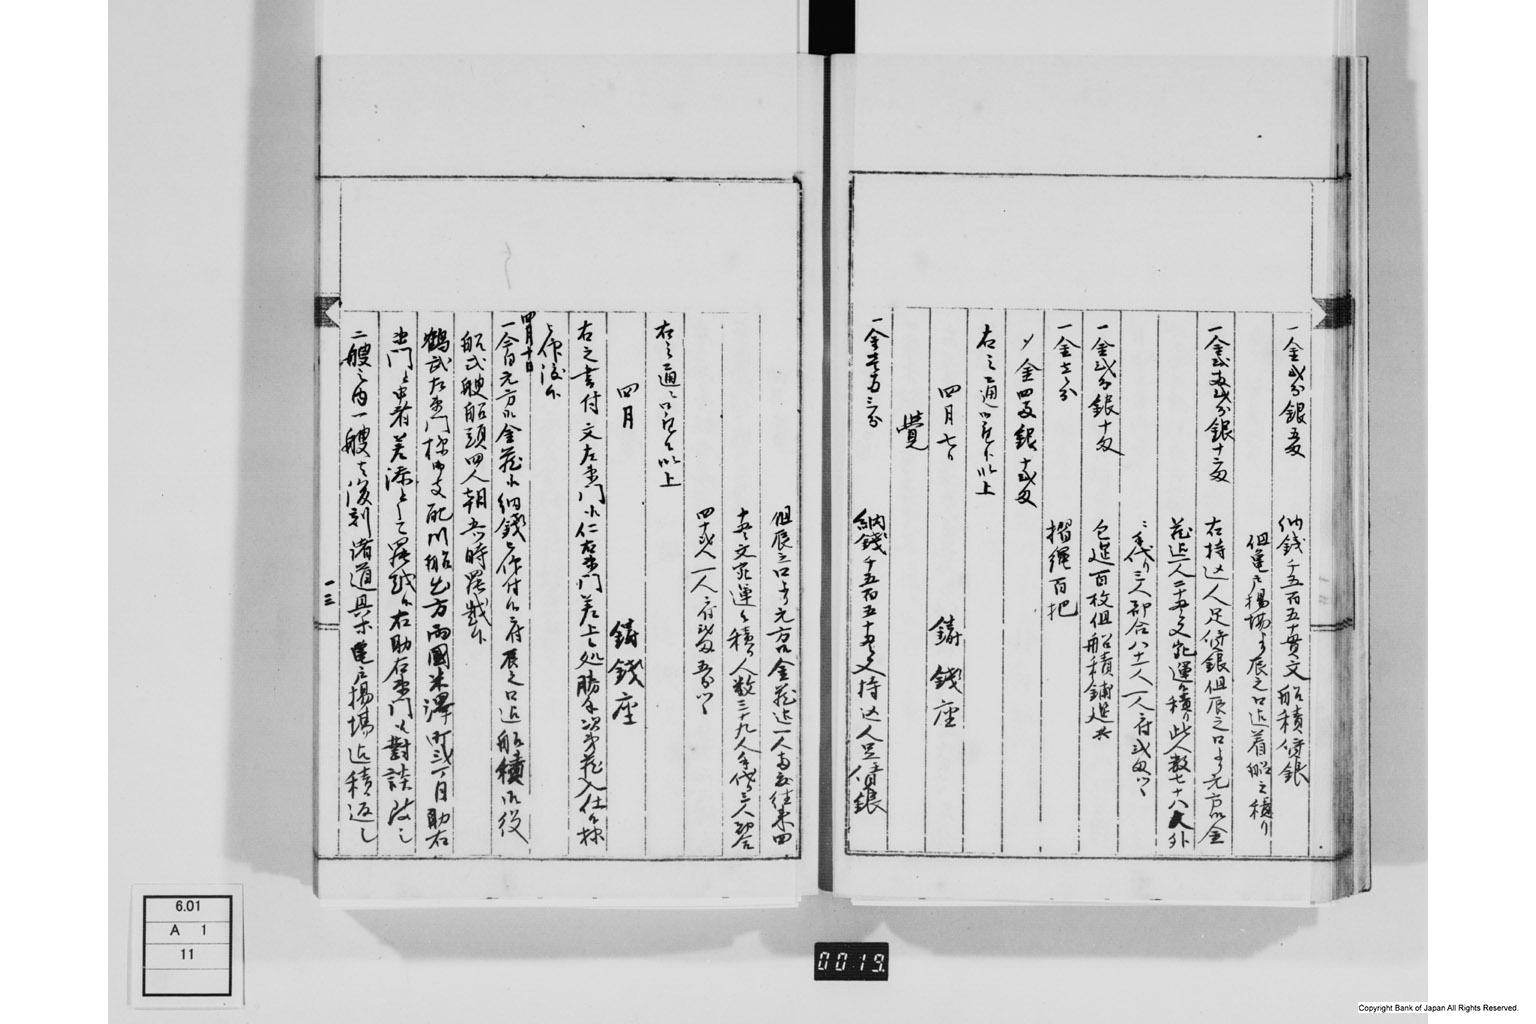 一金弐分銀五匁　納銭千五百五十貫文船積賃銀
但亀戸揚場より辰之口迄着船之積り
一金弐両弐分銀十二匁　右持込人足賃銀但辰之口より元方御金
蔵迄一人二十貫文宛運候積り此人数七十八人外
手代り三人都合八十一人一人ニ付弐匁ツヽ
一金弐分銀十匁　包莚百枚但船積舗莚共
一金壱分　摺縄百把
〆金四両銀十弐匁
右之通御座候以上
四月七日　鋳銭座
覚
一金壱両三分　納銭千五百五十貫文持込人足賃銀
但辰之口より元方御金蔵迄一人両度往来四
十貫文宛運候積り人数三十九人手代り三人都合
四十弐人一人ニ付弐匁五分ツヽ
右之通御座候以上
四月　鋳銭座
右之書付文左衛門小仁右衛門差上候処勝手次第蔵入仕候様
被仰渡候
四月十日
一今日元方御金蔵江納銭被仰付候ニ付辰之口迄船積御役
船弐艘船頭四人朝六時罷越候
鶴武左衛門様御支配川船方両国米沢町弐丁目助右
衛門与申者差添として罷越候右助右衛門対談致し
二艘之内一艘者後刻諸道具等亀戸揚場迄積返し
一三
6.01
A 1
11
0019
Copyright Bank of Japan All Rights Reserved.